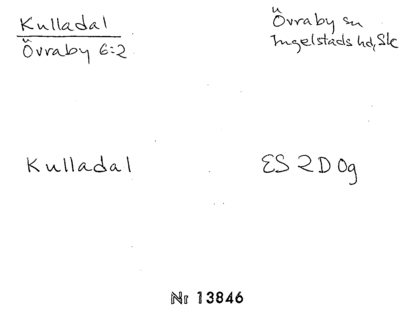 Kulladal
Övraby 6:2
Övraby sn
Ingelstads hd, Sk
Kulladal
ES 2D 0g
Nr 13846